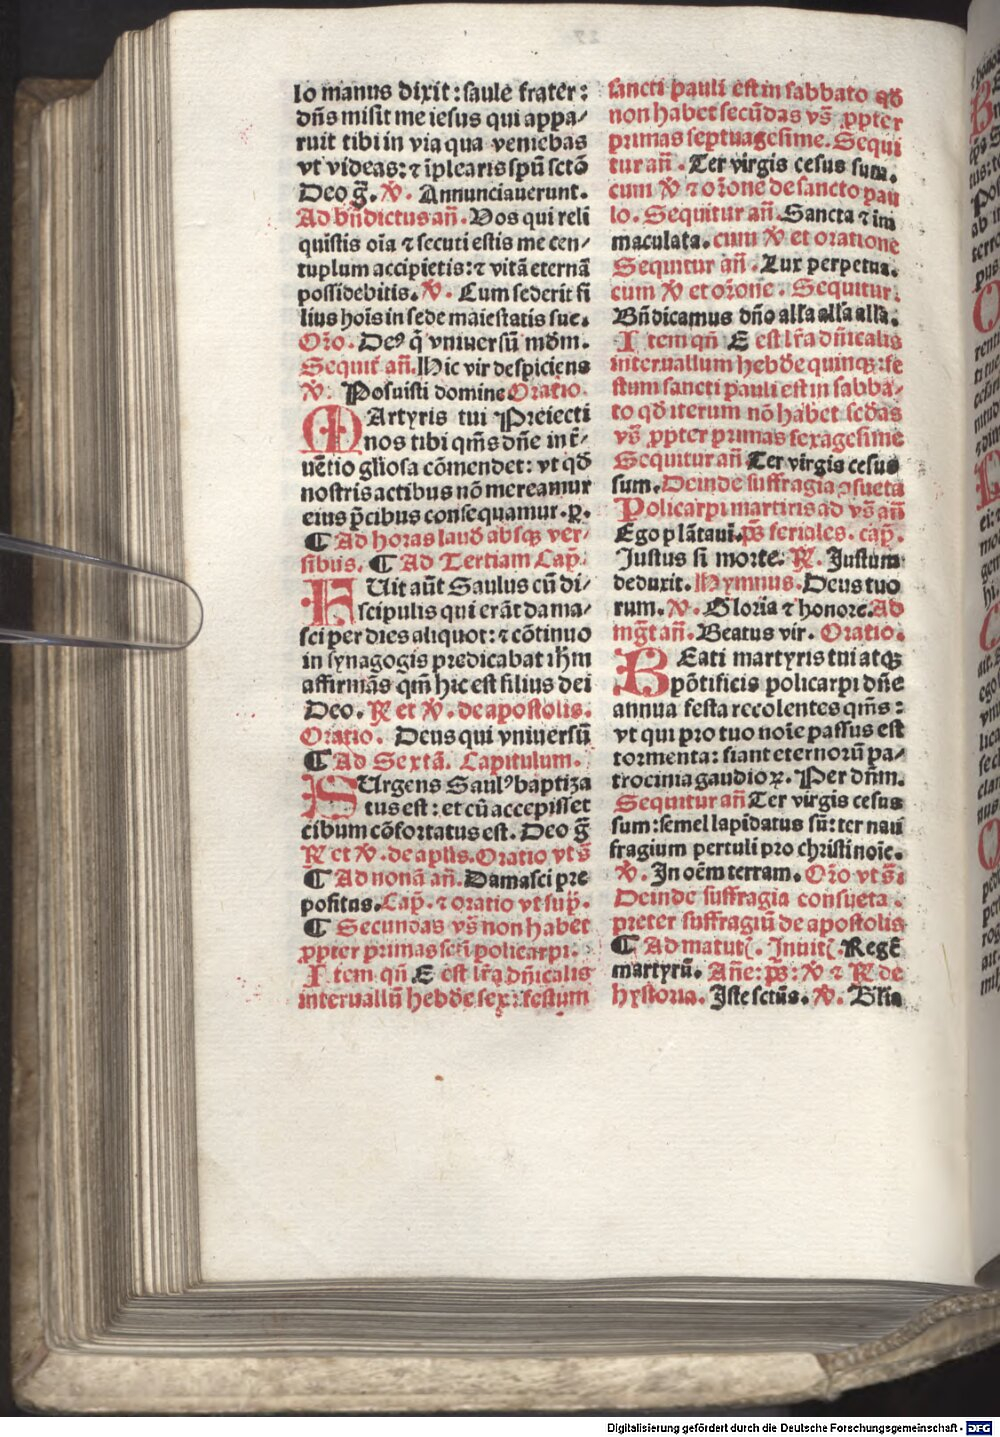 lo manus dixit : saule frater :
dñs misit me iesus qui appa⸗
ruit tibi in via qua veniebas
vt videas: ⁊ īplearis spũ sctō
Deo g̃. ꝟ. Annunciauerunt.
Ad bñdictus añ. Vos qui reli
quistis oīa ⁊ secuti estis me cen⸗
tuplum accipietis: ⁊ vitā eternā
possidebitis. ꝟ. Cum sederit fi
lius hoīs in sede maiestatis sue.
Oṙo. Deꝰ q̄ vniuersū mūdm.
Sequit̄ añ. Hic vir despiciens
ꝟ. Posuisti domine Oratio.
MArtyris tui Preiecti
nos tibi qm̄s dñe int̄⸗
uētio gl̄iosa cōmendet: vt qď
nostris actibus nō mereamur
eius p̄cibus consequamur. ꝑ.
¶ Ad horas lauď absqꝫ ver⸗
sibus. ¶ Ad Tertiam Cap̄.
FUit aūt Saulus cū di⸗
scipulis qui erāt dama⸗
sci per dies aliquot: ⁊ cōtinuo
in synagogis predicabat ihm̄
affirmās qm̄ hic est filius dei
Deo. ℟ et ꝟ. de apostolis.
Oratio. Deus qui vniuersū
¶ Ad Sextā. Capitulum.
SUrgens Saulꝰ baptiza
tus est : et cū accepisset
cibum cōfortatus est. Deo g̃
℟ et ꝟ. de aplis. Oratio vt s̄
¶ Ad nonā añ. Damasci pre
positus. Cap̄. ⁊ oratio vt sup̄.
¶ Secundas vs̄ non habet
ꝓpter primas scti policarpi.
Item qñ E est lr̄a dñicalis
interuallū hebďe sex: ⁊ festum
sancti pauli est in sabbato qď
non habet secūdas vs̄ ꝓpter
primas septuagesime. Sequi
tur añ. Ter virgis cesus sum.
cum ꝟ ⁊ oṙone de sancto pau
lo. Sequitur añ. Sancta ⁊ im
maculata. cum ꝟ et oratione
Sequitur añ. Lux perpetua.
cum ꝟ et oṙone. Sequitur.
Bñdicamus dño alla alla alla.
Item qñ E est lr̄a dñicalis
interuallum hebďe quinqꝫ: fe
stum sancti pauli est in sabba⸗
to qď iterum nō habet scďas
vs̄ ꝓpter primas sexagesime
Sequitur añ Ter virgis cesus
sum. Deinde suffragia ꝯsueta
Policarpi martiris ad vs̄ añ
Ego plātaui. ps̄ feriales. cap̄.
Justus si morte. ℟. Justum
deduxit. Hymnus. Deus tuo
rum. ꝟ. Gloria ⁊ honore. Ad
mḡt añ. Beatus vir. Oratio.
BEati martyris tui atqꝫ
pōtificis policarpi dñe
annua festa recolentes qm̄s :
vt qui pro tuo noīe passus est
tormenta: fiant eternorū pa⸗
trocinia gaudioꝝ. Per dñm.
Sequitur añ Ter virgis cesus
sum: semel lapidatus sū: ter nau
fragium pertuli pro christi noīe.
ꝟ. In oēm terram. Oṙo vt s̄.
Deinde suffragia consueta.
preter suffragiū de apostolis
¶ Ad matut̄. Inuit̄. Regē
martyrū. Añe: ps̄: ꝟ ⁊ ℟ de
hystoria. Iste sctūs. ꝟ. Bt̄a
Digitalisierung gefördert durch die Deutsche Forschungsgemeinschaft - DFG